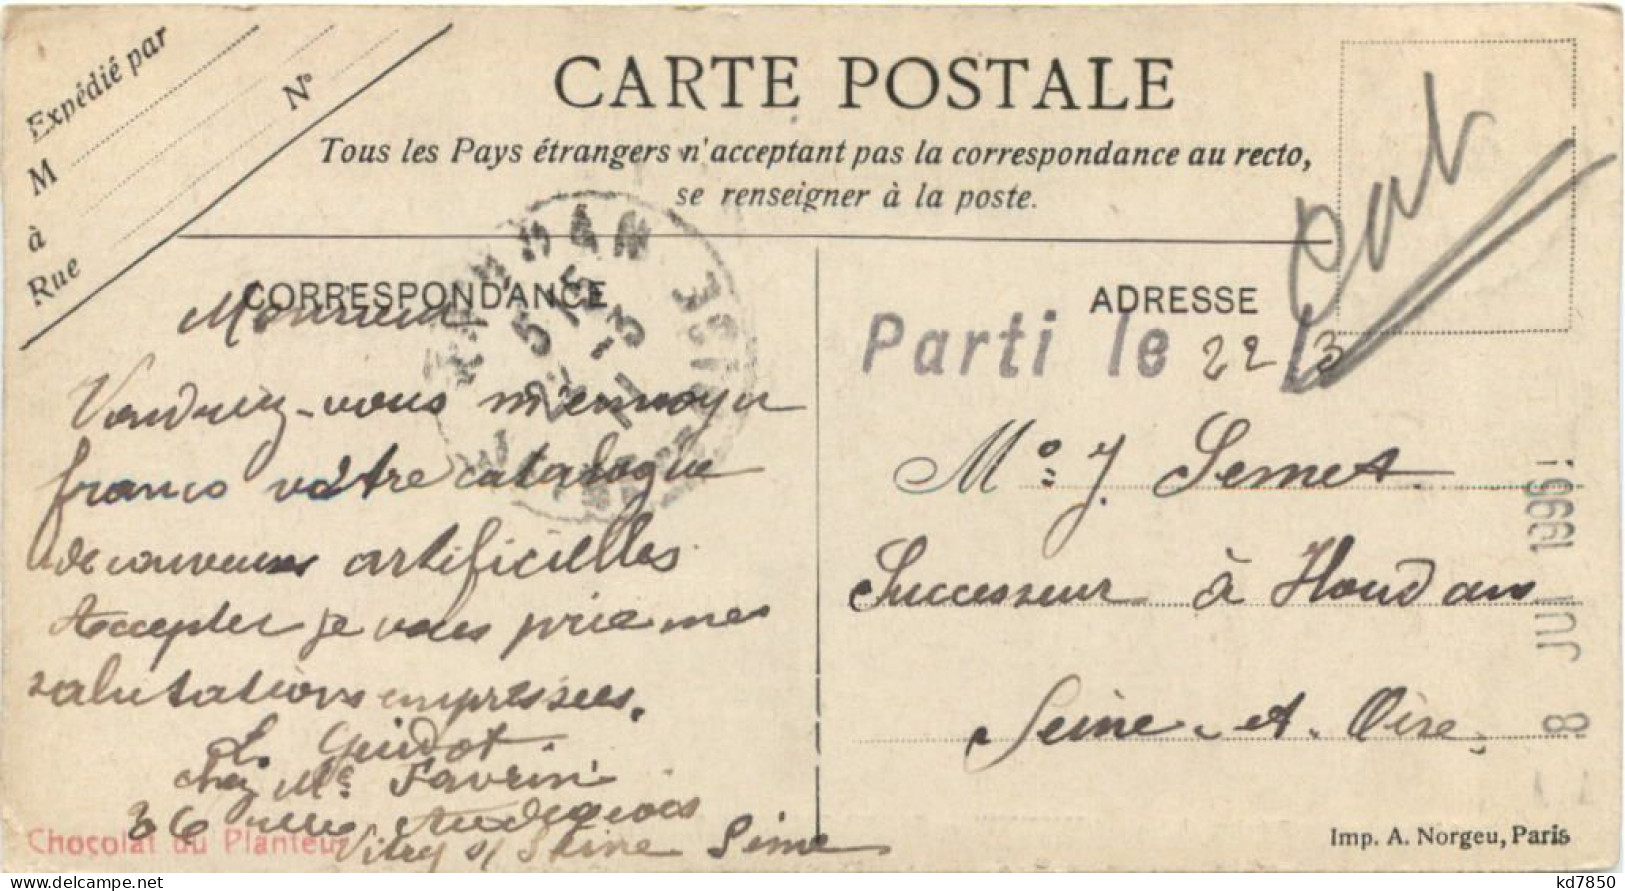 Expédié par
M
à
Rue
N°
CARTE POSTALE
Tous les Pays étrangers n'acceptant pas la correspondance au recto,
se renseigner à la poste.
CORRESPONDANCE
Monsieur
Voudriez-vous m'envoyer
franco votre catalogue
de couveuses artificielles
Accepter je vous prie mes
salutations empressées.
L. Guidot
chez Mr Favrin
36 rue
Vitry s/ Seine Seine
Chocolat du Planteur
HOUDAN
5 15
22 - 3
11
SEINE ET OISE
ADRESSE
Parti le 22/3
Cat
Mo J. Semet
Successeur à Houdan
Seine-et-Oise
8 JUL 1996
Imp. A. Norgeu, Paris
kd7850